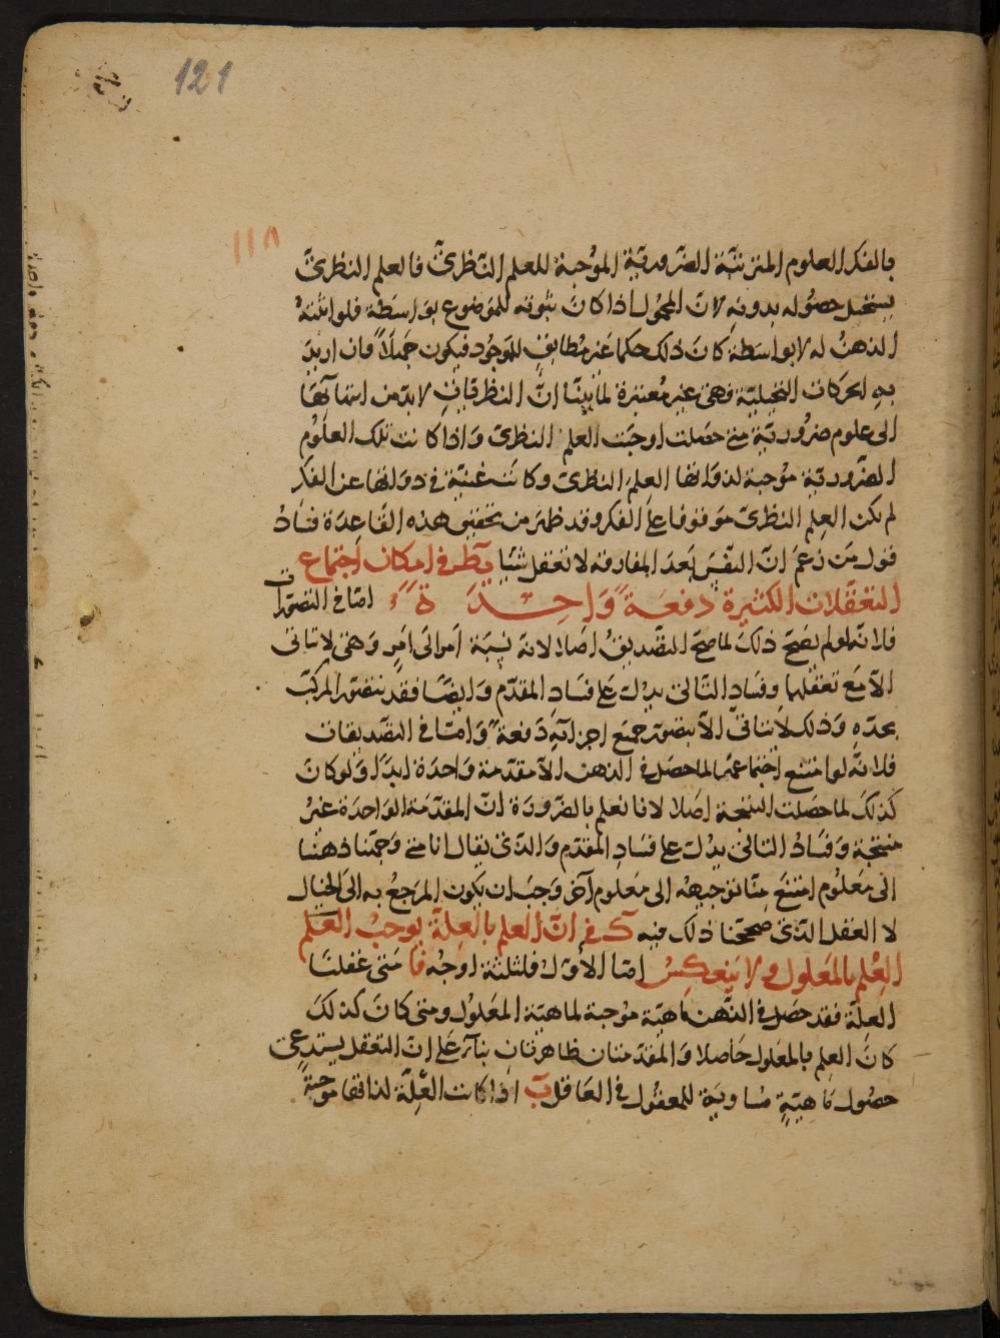 121
١١٨
بالفكر العلوم المترتبة الضرورية الموجبة للعلم النظرىّ فالعلم النظرىّ
يستحيل حصوله بدونه لانّ المحمول اذا كان ثبوته للموضوع بواسطة فلو اثبته
الذهن له لا بواسطة كان ذلك حكما غير مطابق للوجود فيكون جهلاً فان اريد
به الحركات التخيلية فهى غير معتبرة لما بينّا انّ النظريات لا بد من انتهائها
الى علوم ضرورية متى حصلت اوجبت العلم النظرى واذا كانت تلك العلوم
الضرورية موجبة لذواتها العلم النظرى وكانت غنية فى ذواتها عن الفكر
لم يكن العلم النظرى موقوفا على الفكر وقد ظهر من تحقيق هذه القاعدة فساد
قول من زعم انّ النفس بعد المفارقة لا تعقل شيا يط فى امكان اجتماع
التعقلات الكثيرة دفعة واحدة امّا فى التصورات
فلانّه لو لم يصح ذلك لما صح التصديق اصلا لانه نسبة امر الى امر وهى لا تتاتى
الّا مع تعقلهما وفساد التالى يدل على فساد المقدّم وايضًا فقد نتصور المركب
بحدّه وذلك لا يتاتى الّا بتصور جميع اجزائه دفعة وامّا فى التصديقات
فلانّه لو امتنع اجتماعها لما حصل فى الذهن الّا مقدمة واحدة ابدًا ولو كان
كذلك لما حصلت النتيجة اصلا لانا نعلم بالضرورة انّ المقدمة الواحدة غير
منتجة وفساد التالى يدل على فساد المقدم والذى يقال انا متى وجهنا ذهننا
الى معلوم امتنع منّا توجيهه الى معلوم آخر وجب ان يكون المرجع به الى الخيال
لا العقل الذى صححنا ذلك فيه ك فى انّ العلم بالعلة يوجب العلم
العلم بالمعلول ولا ينعكس امّا الاول فلثلثة اوجه فا متى عقلنا
العلة فقد حصل فى الذهن ماهية موجبة لماهية المعلول ومتى كان كذلك
كان العلم بالمعلول حاصلا والمقدمتان ظاهرتان بناء على انّ التعقل يستدعى
حصول ماهية مساوية للمعقول فى العاقل ب اذا كانت العلة لذاتها موجبة